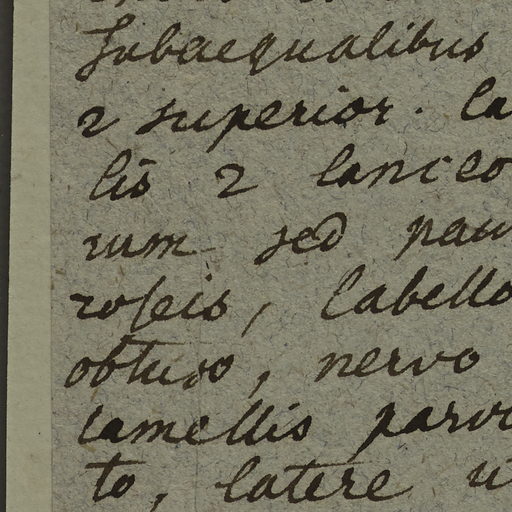 Subaequalibus
2 superior. la
lis 2 lanceo
rum sed pau
roseis, labello
obtuso, nervo
lamellis parv
to, latere u